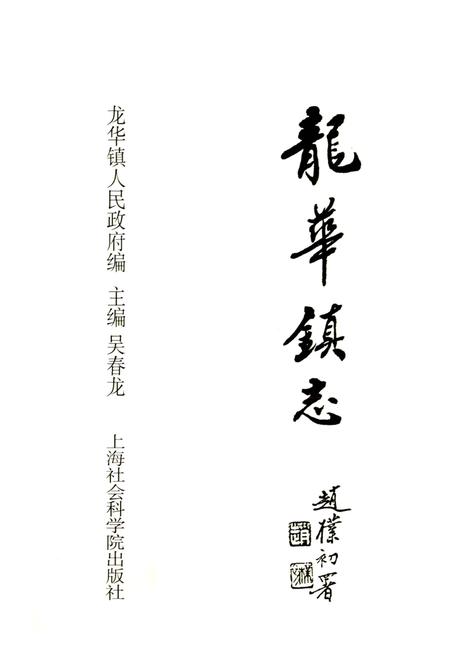 龍華鎮志
趙樸初署
龙华镇人民政府编 主编 吴春龙 上海社会科学院出版社